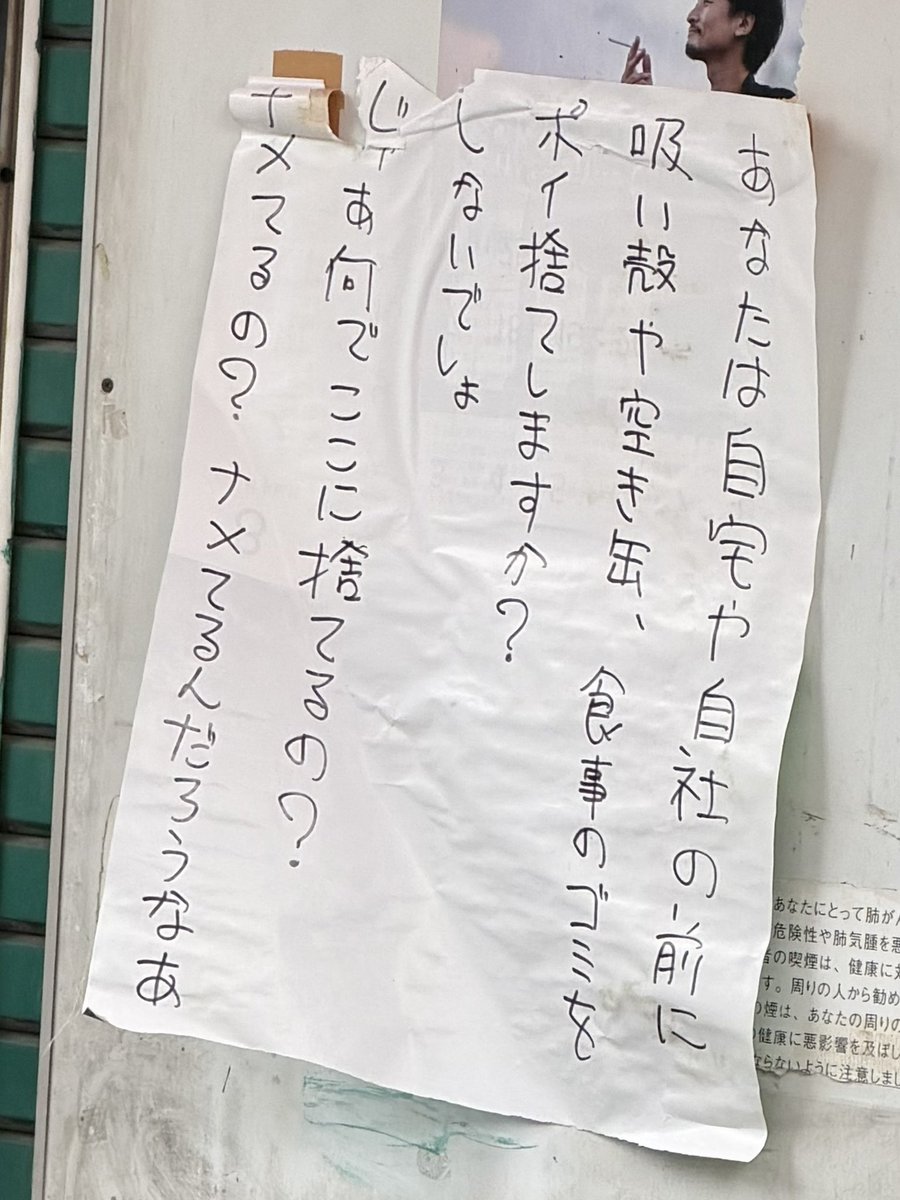 あなたは自宅や自社の前に
吸い殻や空き缶、食事のゴミを
ポイ捨てしますか？
しないでしょ
じゃあ何でここに捨てるの？
ナメてるの？ ナメてるんだろうなあ
あなたにとって肺が
危険性や肺気腫を悪
者の喫煙は、健康に
す。周りの人から勧め
の煙は、あなたの周りの
健康に悪影響を及ぼし
ならないように注意しまし